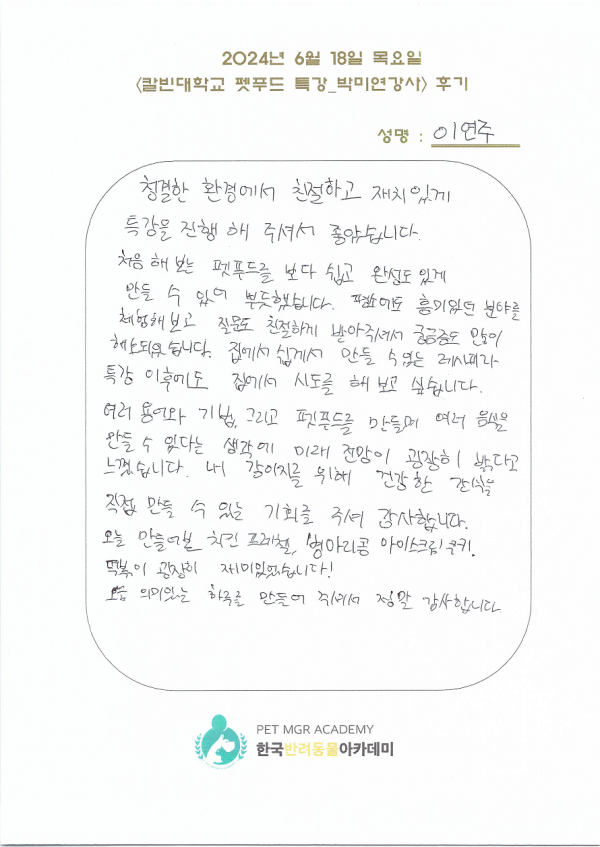 2024년 6월 18일 목요일
<칼빈대학교 펫푸드 특강_박미연강사> 후기
성명 : 이연주
청결한 환경에서 친절하고 재치있게
특강을 진행 해 주셔서 좋았습니다.
처음 해 보는 펫푸드를 보다 쉽고 완성도 있게
만들 수 있어 뿌듯했습니다. 평소에도 흥미있던 분야를
체험해보고 질문도 친절하게 받아주셔서 궁금증도 많이
해소되었습니다. 집에서 쉽게서 만들 수 있는 레시피라
특강 이후에도 집에서 시도를 해 보고 싶습니다.
여러 용어와 기법, 그리고 펫푸드를 만들며 여러 음식을
만들 수 있다는 생각에 미래 전망이 굉장히 밝다고
느꼈습니다. 내 강아지를 위해 건강한 간식을
직접 만들 수 있는 기회를 주셔 감사합니다.
오늘 만들어본 치킨 프레첼, 병아리콩 아이스크림 쿠키,
떡볶이 굉장히 재미있었습니다!
오늘 의미있는 하루를 만들어 주셔서 정말 감사합니다
PET MGR ACADEMY
한국반려동물아카데미